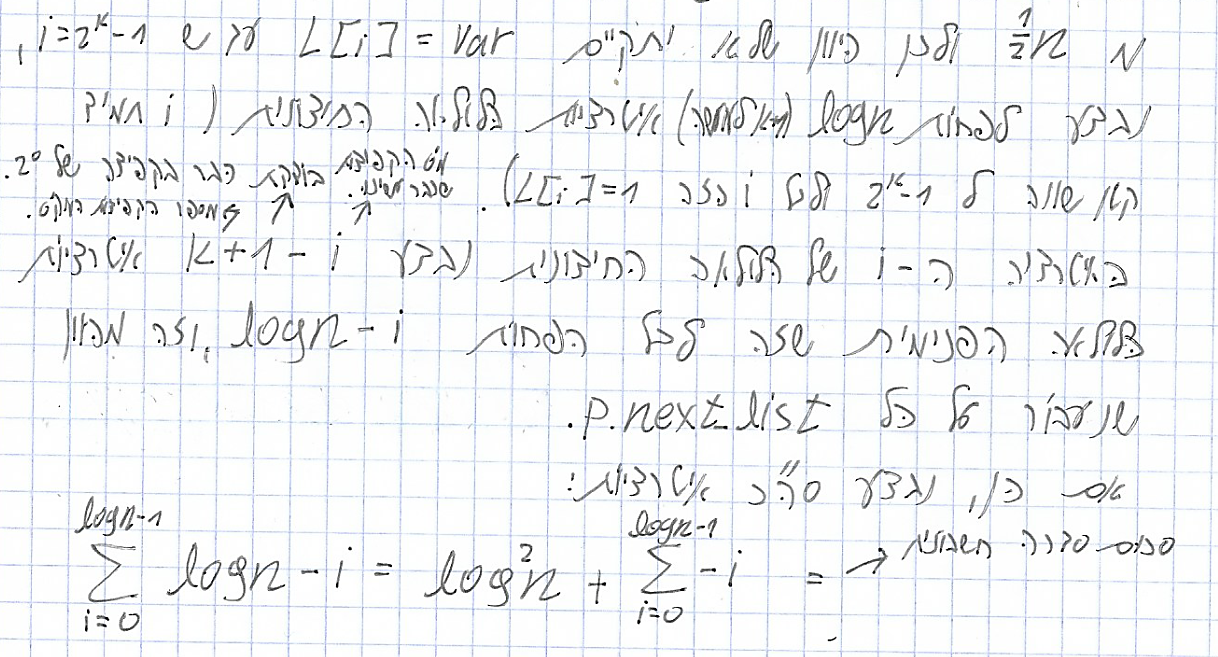 מ ½n ולכן כיוון שלא יתקיים L[i] = var עד ש i=2^k-1,
נבצע לפחות logn (או למעשה) איטרציות בלולאה החיצונית ( i תמיד
כאן שווה ל 2^k-1 ולכל i כזה L[i]=1).
מס' הקפיצות שכבר עשינו. בודקת כבר בקפיצה של 2^0. מספר הקפיצות המקס'.
האיטרציה ה-i של הלולאה החיצונית נבצע k+1-i איטרציות
בלולאה הפנימית שזה לכל הפחות logn-i, וזה מכיוון
שנעבור על כל p.next_list.
אם כן, נבצע סה"כ איטרציות:
\sum_{i=0}^{logn-1} logn-i = log²n + \sum_{i=0}^{logn-1} -i = → סכום סדרה חשבונית